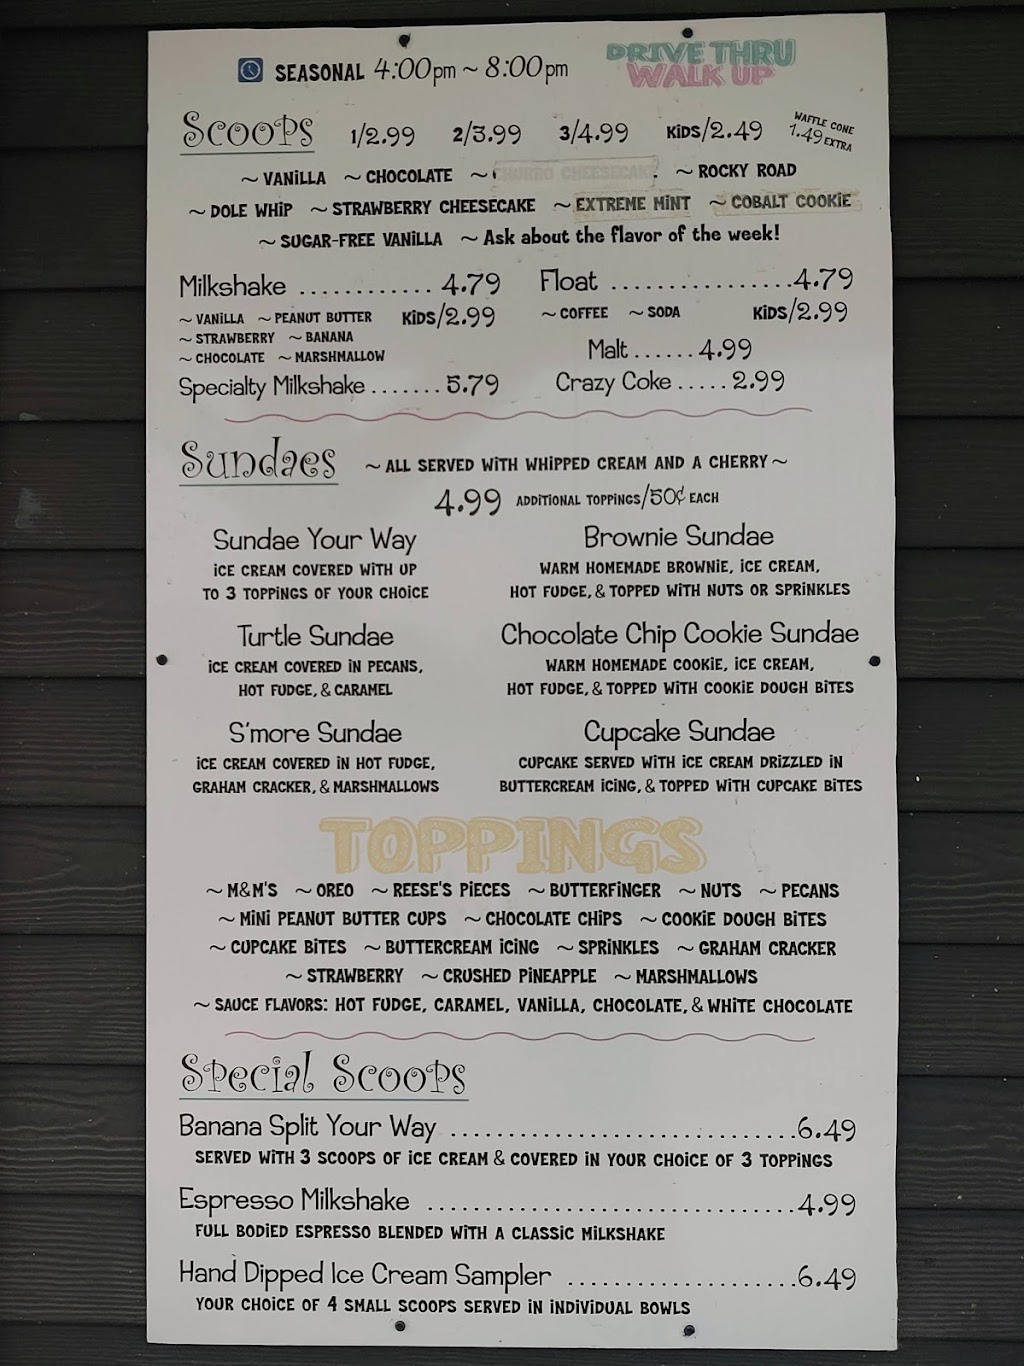 SEASONAL 4:00pm ~ 8:00pm
DRIVE THRU
WALK UP
Scoops 1/2.99 2/3.99 3/4.99 KiDS/2.49 WAFFLE CONE
1.49 EXTRA
~ VANiLLA ~ CHOCOLATE ~ CHURRO CHEESECAKE ~ ROCKY ROAD
~ DOLE WHiP ~ STRAWBERRY CHEESECAKE ~ EXTREME MiNT ~ COBALT COOKiE
~ SUGAR-FREE VANiLLA ~ Ask about the flavor of the week!
Milkshake ............ 4.79
~ VANiLLA ~ PEANUT BUTTER KiDS/2.99
~ STRAWBERRY ~ BANANA
~ CHOCOLATE ~ MARSHMALLOW
Specialty Milkshake ....... 5.79
Float ................4.79
~ COFFEE ~ SODA KiDS/2.99
Malt ...... 4.99
Crazy Coke ..... 2.99
Sundaes ~ ALL SERVED WiTH WHiPPED CREAM AND A CHERRY ~
4.99 ADDiTiONAL TOPPiNGS/50¢ EACH
Sundae Your Way
iCE CREAM COVERED WiTH UP
TO 3 TOPPiNGS OF YOUR CHOiCE
Brownie Sundae
WARM HOMEMADE BROWNiE, iCE CREAM,
HOT FUDGE, & TOPPED WiTH NUTS OR SPRiNKLES
Turtle Sundae
iCE CREAM COVERED iN PECANS,
HOT FUDGE, & CARAMEL
Chocolate Chip Cookie Sundae
WARM HOMEMADE COOKiE, iCE CREAM,
HOT FUDGE, & TOPPED WiTH COOKiE DOUGH BiTES
S'more Sundae
iCE CREAM COVERED iN HOT FUDGE,
GRAHAM CRACKER, & MARSHMALLOWS
Cupcake Sundae
CUPCAKE SERVED WiTH iCE CREAM DRiZZLED iN
BUTTERCREAM iCiNG, & TOPPED WiTH CUPCAKE BiTES
TOPPINGS
~ M&M'S ~ OREO ~ REESE'S PiECES ~ BUTTERFiNGER ~ NUTS ~ PECANS
~ MiNi PEANUT BUTTER CUPS ~ CHOCOLATE CHiPS ~ COOKiE DOUGH BiTES
~ CUPCAKE BiTES ~ BUTTERCREAM iCiNG ~ SPRiNKLES ~ GRAHAM CRACKER
~ STRAWBERRY ~ CRUSHED PiNEAPPLE ~ MARSHMALLOWS
~ SAUCE FLAVORS: HOT FUDGE, CARAMEL, VANiLLA, CHOCOLATE, & WHiTE CHOCOLATE
Special Scoops
Banana Split Your Way ..............................6.49
SERVED WiTH 3 SCOOPS OF iCE CREAM & COVERED iN YOUR CHOiCE OF 3 TOPPiNGS
Espresso Milkshake ................................4.99
FULL BODiED ESPRESSO BLENDED WiTH A CLASSiC MiLKSHAKE
Hand Dipped Ice Cream Sampler ....................6.49
YOUR CHOiCE OF 4 SMALL SCOOPS SERVED iN iNDiViDUAL BOWLS